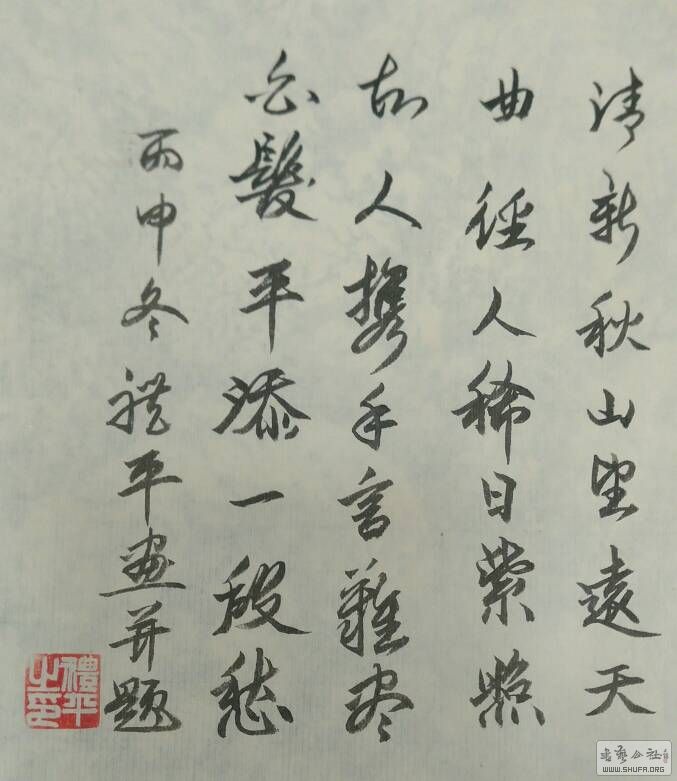 清新秋山望遠天
曲徑人稀日紫照
故人携手言難尽
白髮平添一段愁
丙申冬礼平画并题
禮平之印
书艺公社
WWW.SHUFA.ORG